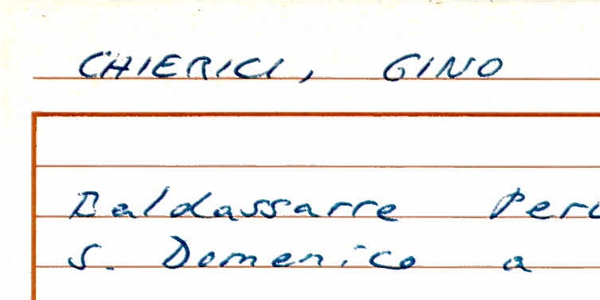 CHIERICI, GINO
Baldassarre
S. Domenico a